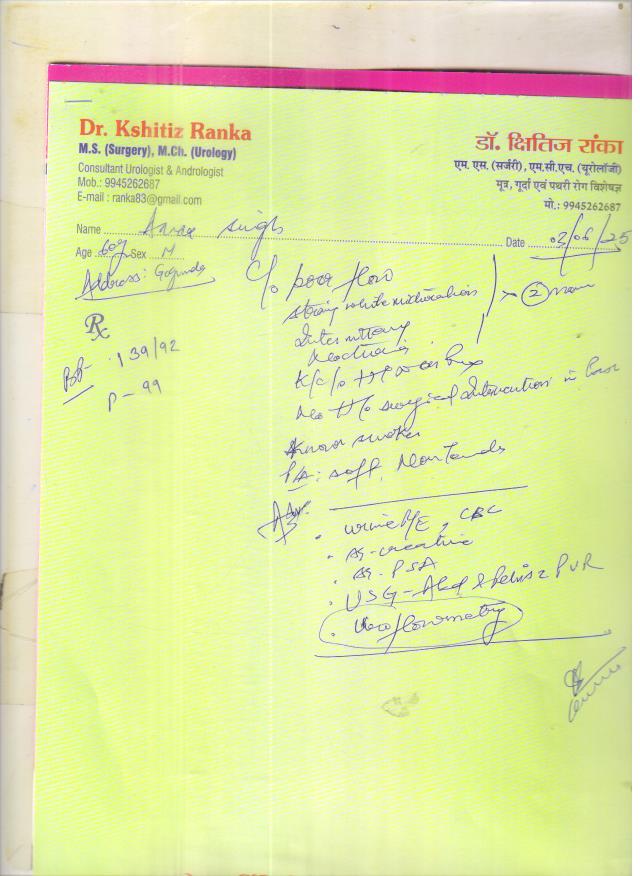 Dr. Kshitiz Ranka
M.S. (Surgery), M.Ch. (Urology)
Consultant Urologist & Andrologist
Mob.: 9945262687
E-mail : ranka83@gmail.com
डॉ. क्षितिज रांका
एम. एस. (सर्जरी), एम.सी.एच. (यूरोलॉजी)
मूत्र, गुर्दा एवं पथरी रोग विशेषज्ञ
मो.: 9945262687
Name singh
Date 03/06/25
Age 60y Sex M
Address:
Rx
BP- 139/92
P - 99
c/o poor flow
straining while micturation
Intermittency
Nocturia
K/c/o HTN
No H/o surgical intervention in
Known smoker
P/A: soft, Non Tender
Adv.
. urine R/E, CBC
. Sr. creatinine
. Sr. PSA
. USG - Abd & Pelvis c PVR
. Uroflowmetry